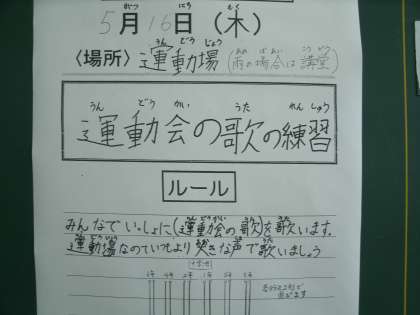 5月16日(木)
〈場所〉運動場(雨の場合は講堂)
運動会の歌の練習
ルール
みんなでいっしょに(運動会の歌)を歌います。
運動場なのでいつもより大きな声で歌いましょう